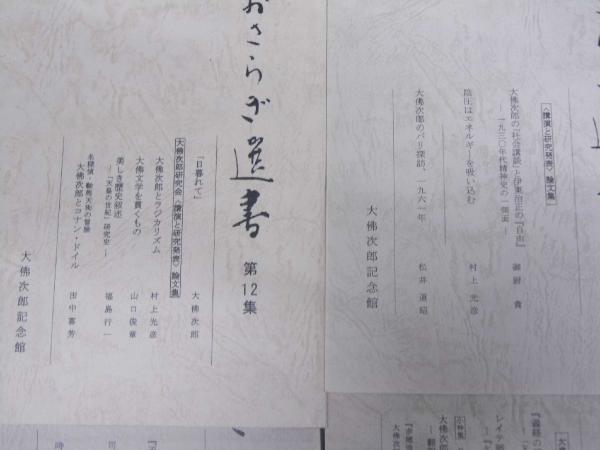 おさらぎ選書
第12集
『日暮れて』
大佛次郎
大佛次郎研究会〈講演と研究発表〉論文集
大佛次郎とラジカリズム
村上光彦
大佛文学を貫くもの
山口俊章
美しき歴史叙述
―『天皇の世紀』研究史―
福島行一
名探偵・鞍馬天狗の冒険
大佛次郎とコナン・ドイル
田中喜芳
大佛次郎記念館
〈講演と研究発表〉論文集
大佛次郎の「社会講談」と伊東治正の『自由』
―一九三〇年代精神史の一側面―
御厨貴
陰圧はエネルギーを吸い込む
村上光彦
大佛次郎のパリ探訪、一九六一年
松井道昭
大佛次郎記念館